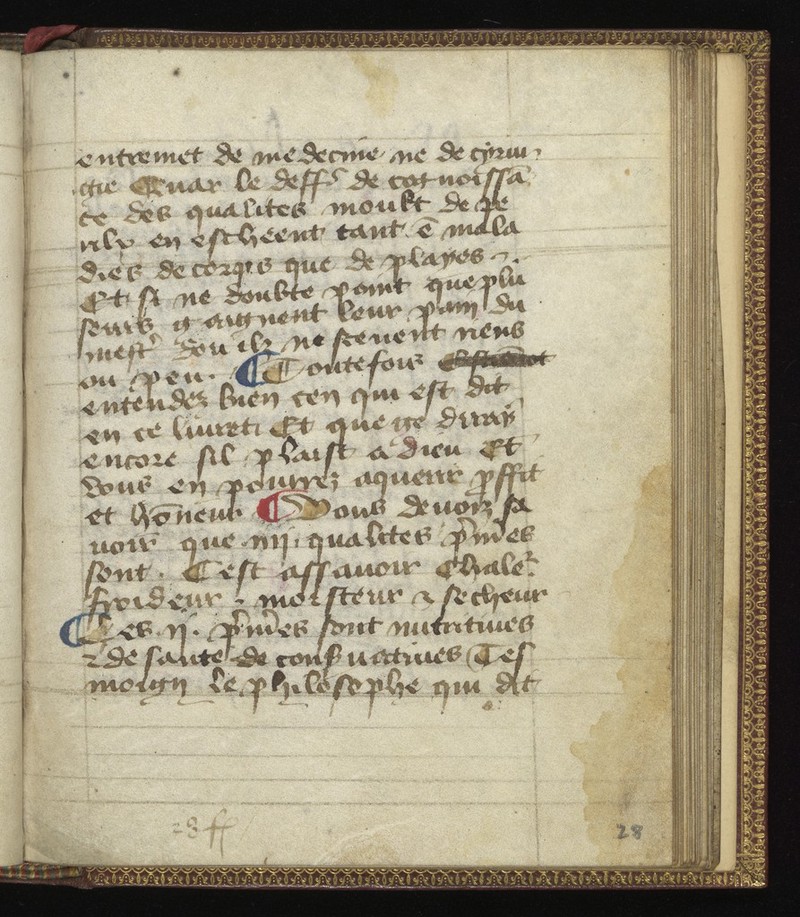 entremet de medecine ne de cyrur
gie Quar le deffᵗ de cognoissã
ce des qualites moult de pe
rilz en escheent tant ẽ mala
dies de corps que de playes
Et si ne doubte point que plu
seurs gaignent leur pain du
mestʳ dou ilz ne sceuent riens
ou peu. Toutefois
entendez bien cen qui est dit
en ce liuret Et que ge diray
encore sil plaist a dieu Et
vous en pourrez aquerir p̃ffit
et hõneur Vous devoiz sa
voir que .iiii. qualites p̃m̃es
sont. Cest assauoir Chaleʳ
froideur, moisteur ⁊ secheur
Les .ii. p̃m̃es sont nutritiues
⁊ de sante de conseruatiues Tes
moign le philosophe qui dit
28 ff
28